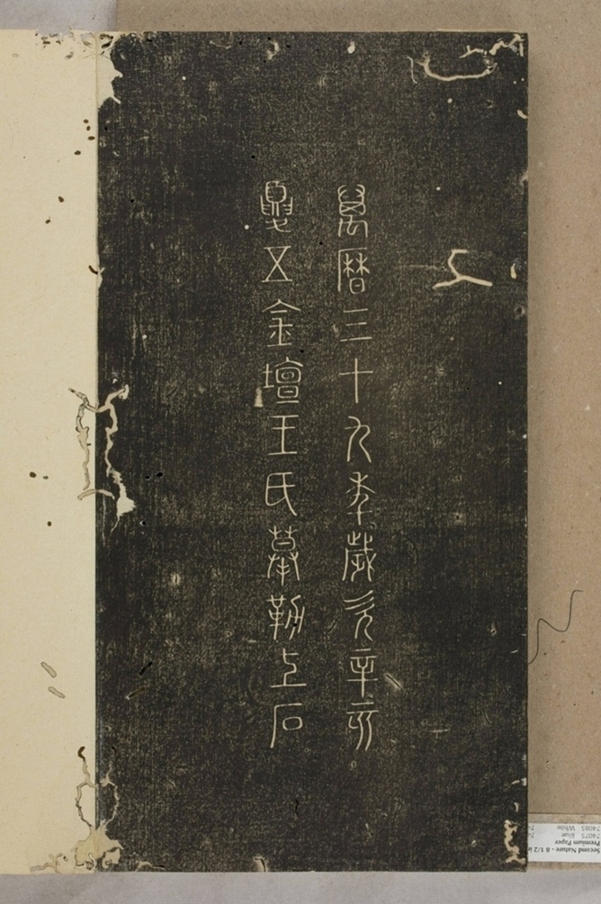 萬曆三十九年歲次辛亥
夏五金壇王氏摹勒上石
Second Nature - 8 1/2
Premium Paper
74075 Blue
74085 White